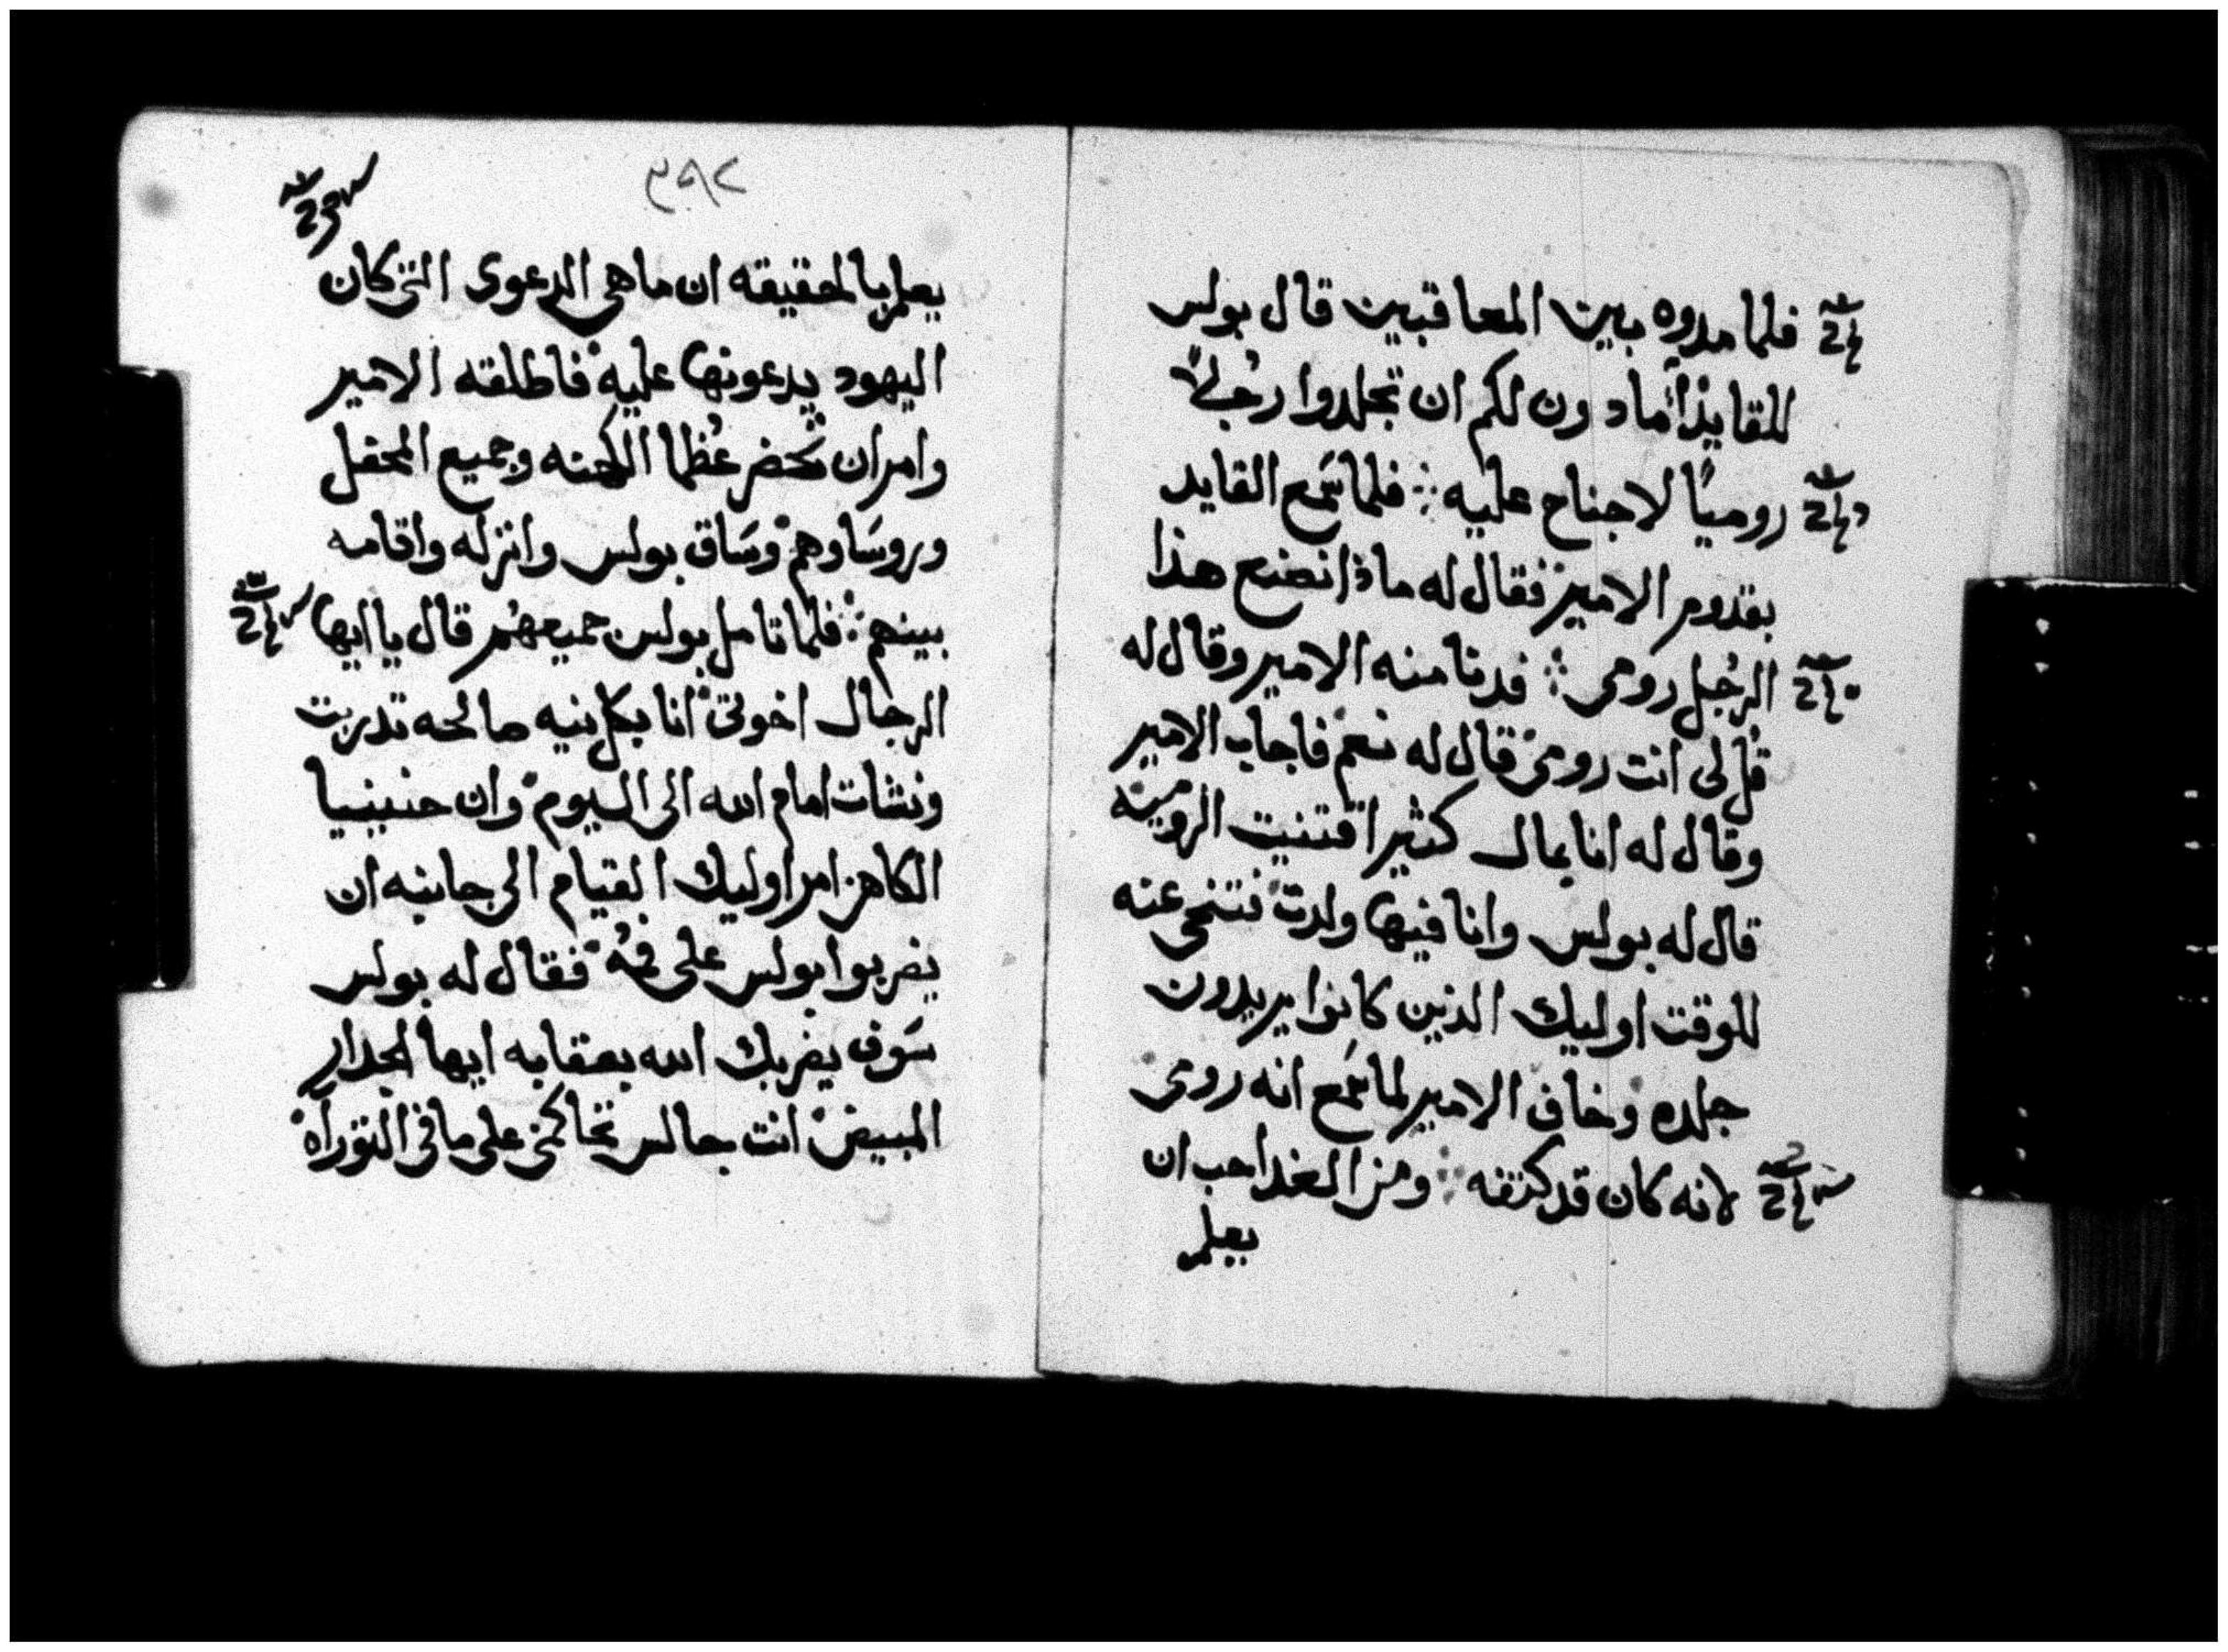 فلما مدوه بين المعاقبين قال بولس
للقايد أمادون لكم ان تجلدوا رجُلاً
روميًا لاجناح عليه ؞ فلما سَمع القايد
بقدوم الامير فقال له ماذا نصنع هذا
الرجُل رومى ؞ فدنا منه الامير وقال له
قُل لى انت رومى قال له نعم فاجاب الامير
وقال له انا بمال كثير اقتنيت الروميه
قال له بولس وانا فيها ولدت فتنحى عنه
للوقت اوليك الذين كانوا يريدون
جلده وخاف الامير لما سَمع انه رومى
لانه كان قد كتفه ؞ ومن الغد احب ان
يعلم
٣٩٢
يعلم بالحقيقه ان ماهى الدعوى التى كان
اليهود يدعونها عليه فاطلقه الامير
وامر ان تحضر عُظما الكهنه وجميع المحفل
وروسَاوهم وسَاق بولس وانزله واقامه
بينهم ؞ فلما تامل بولس جميعهُم قال يا ايها
الرجال اخوتى انا بكل نيه صالحه تدربت
ونشات امام الله الى اليوم وان حنينيا
الكاهن امر اوليك القيام الى جانبه ان
يضربوا بولس على فمُه فقال له بولس
سَوف يضربك الله بعقابه ايها الجدار
المبيض انت جالس تحاكمنى على ما فى التوراة